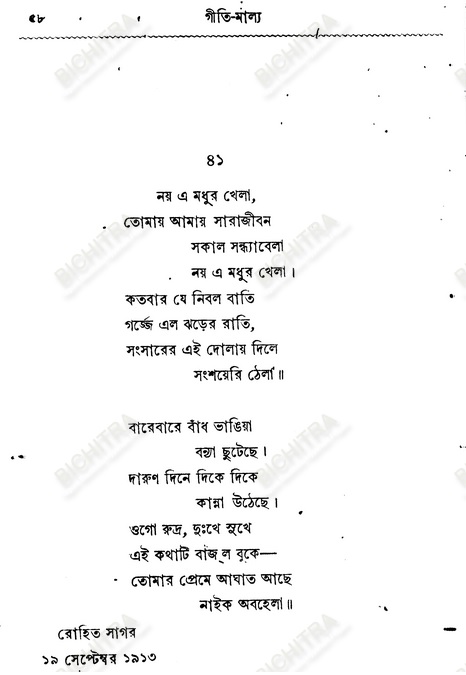 ৫৮
গীতি-মাল্য
৪১
নয় এ মধুর খেলা,
তোমায় আমায় সারাজীবন
সকাল সন্ধ্যাবেলা
নয় এ মধুর খেলা।
কতবার যে নিবল বাতি
গর্জ্জে এল ঝড়ের রাতি,
সংসারের এই দোলায় দিলে
সংশয়েরি ঠেলা॥
বারেবারে বাঁধ ভাঙিয়া
বন্যা ছুটেছে।
দারুণ দিনে দিকে দিকে
কান্না উঠেছে।
ওগো রুদ্র, দুঃখে সুখে
এই কথাটি বাজ্‌ল বুকে—
তোমার প্রেমে আঘাত আছে
নাইক অবহেলা॥
রোহিত সাগর
১৯ সেপ্টেম্বর ১৯১৩
BICHITRA
BICHITRA
BICHITRA
BICHITRA
BICHITRA
BICHITRA
BICHITRA
BICHITRA